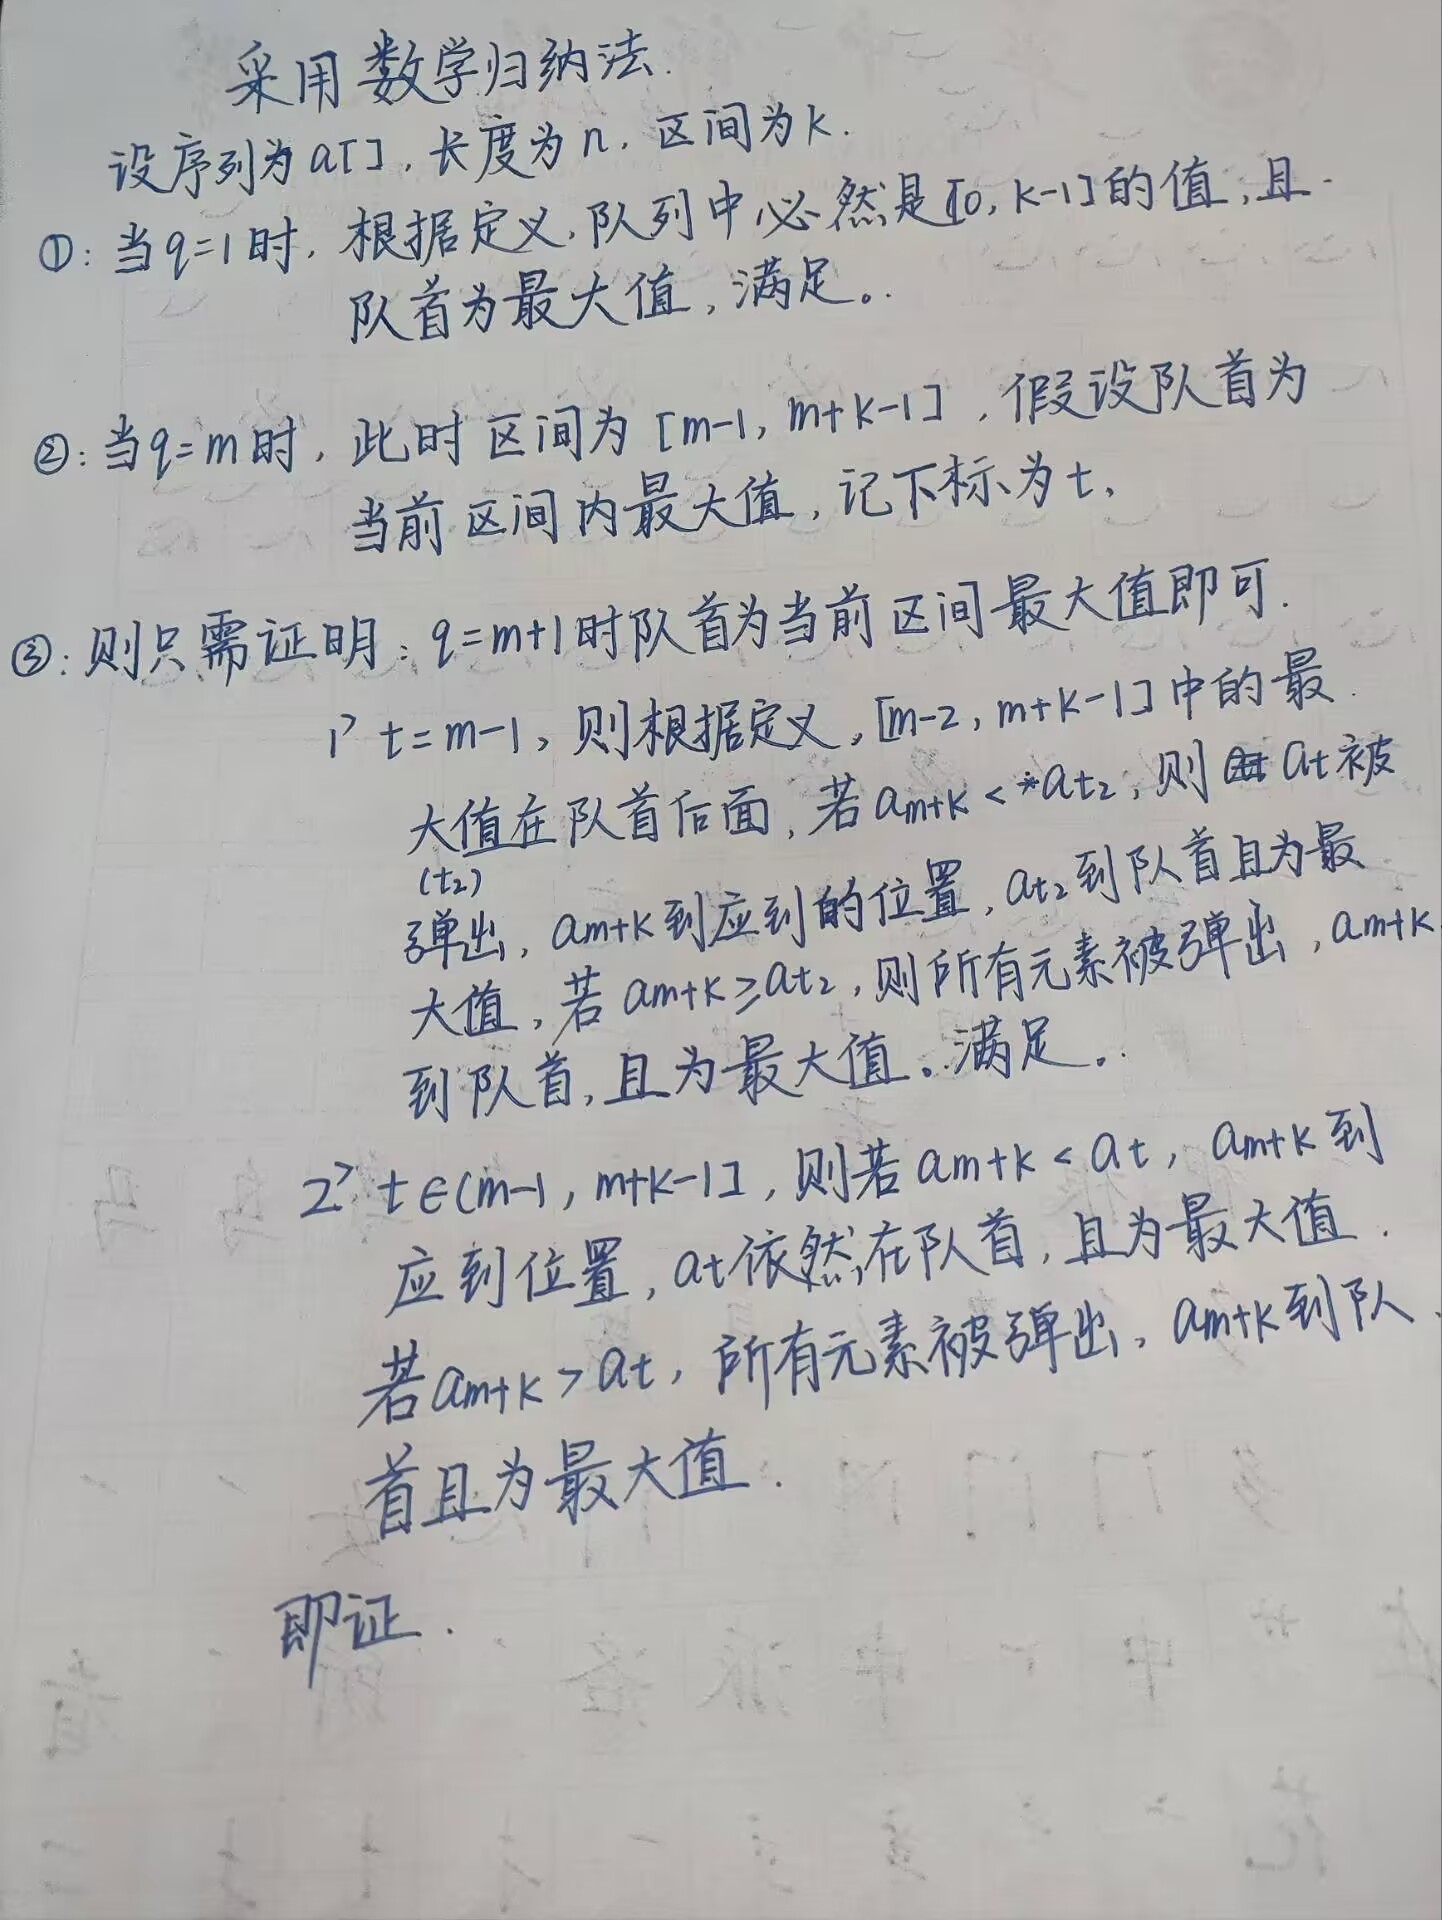 采用数学归纳法.
设序列为a[], 长度为n, 区间为k.
①: 当q=1时, 根据定义, 队列中必然是[0, k-1]的值, 且
队首为最大值, 满足。
②: 当q=m时, 此时区间为[m-1, m+k-1], 假设队首为
当前区间内最大值, 记下标为t,
③: 则只需证明: q=m+1时队首为当前区间最大值即可.
1° t=m-1, 则根据定义, [m-2, m+k-1]中的最
大值在队首后面, 若am+k<*at2, 则at被
(t2)
弹出, am+k到应到的位置, at2到队首且为最
大值, 若am+k≥at2, 则所有元素被弹出, am+k
到队首, 且为最大值。满足。
2° t∈(m-1, m+k-1], 则若am+k<at, am+k到
应到位置, at依然在队首, 且为最大值.
若am+k>at, 所有元素被弹出, am+k到队
首且为最大值.
即证.